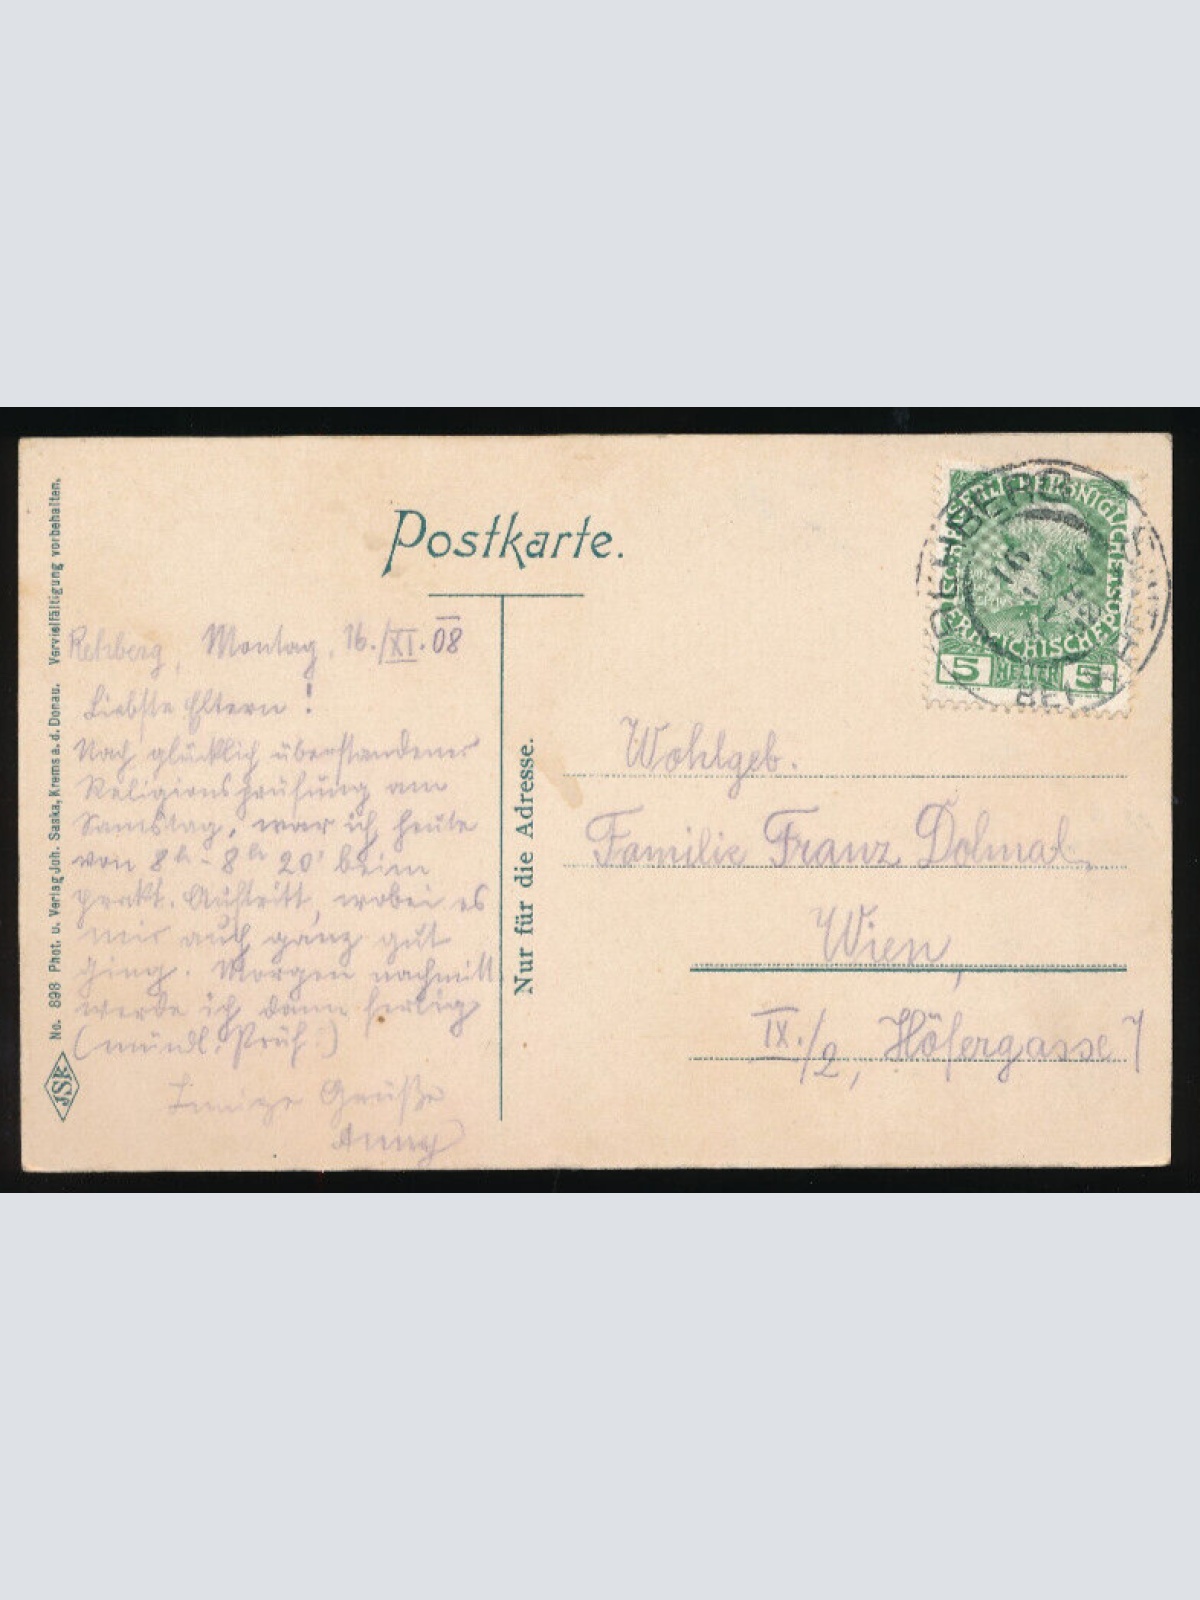 Postkarte.
Rehberg, Montag, 16./XI. 08
Liebste Eltern!
Nach glücklich überstandener
Religionsprüfung am
Samstag, war ich heute
von 8h - 8h 20' beim
prakt. Auftritt, wobei es
mir auch ganz gut
ging. Morgen nachmitt.
werde ich dann fertig
(mündl. Prüf.)
Innige Grüße
Anny
No. 898 Phot. u. Verlag Joh. Saska, Krems a. d. Donau. Vervielfältigung vorbehalten.
JSK
Nur für die Adresse.
Wohlgeb.
Familie Franz Dolmal
Wien,
IX./2, Höfergasse 7
KAISERLICHE KÖNIGLICHE
ÖSTERREICHISCHE POST
5 HELLER 5
REHBERG
16